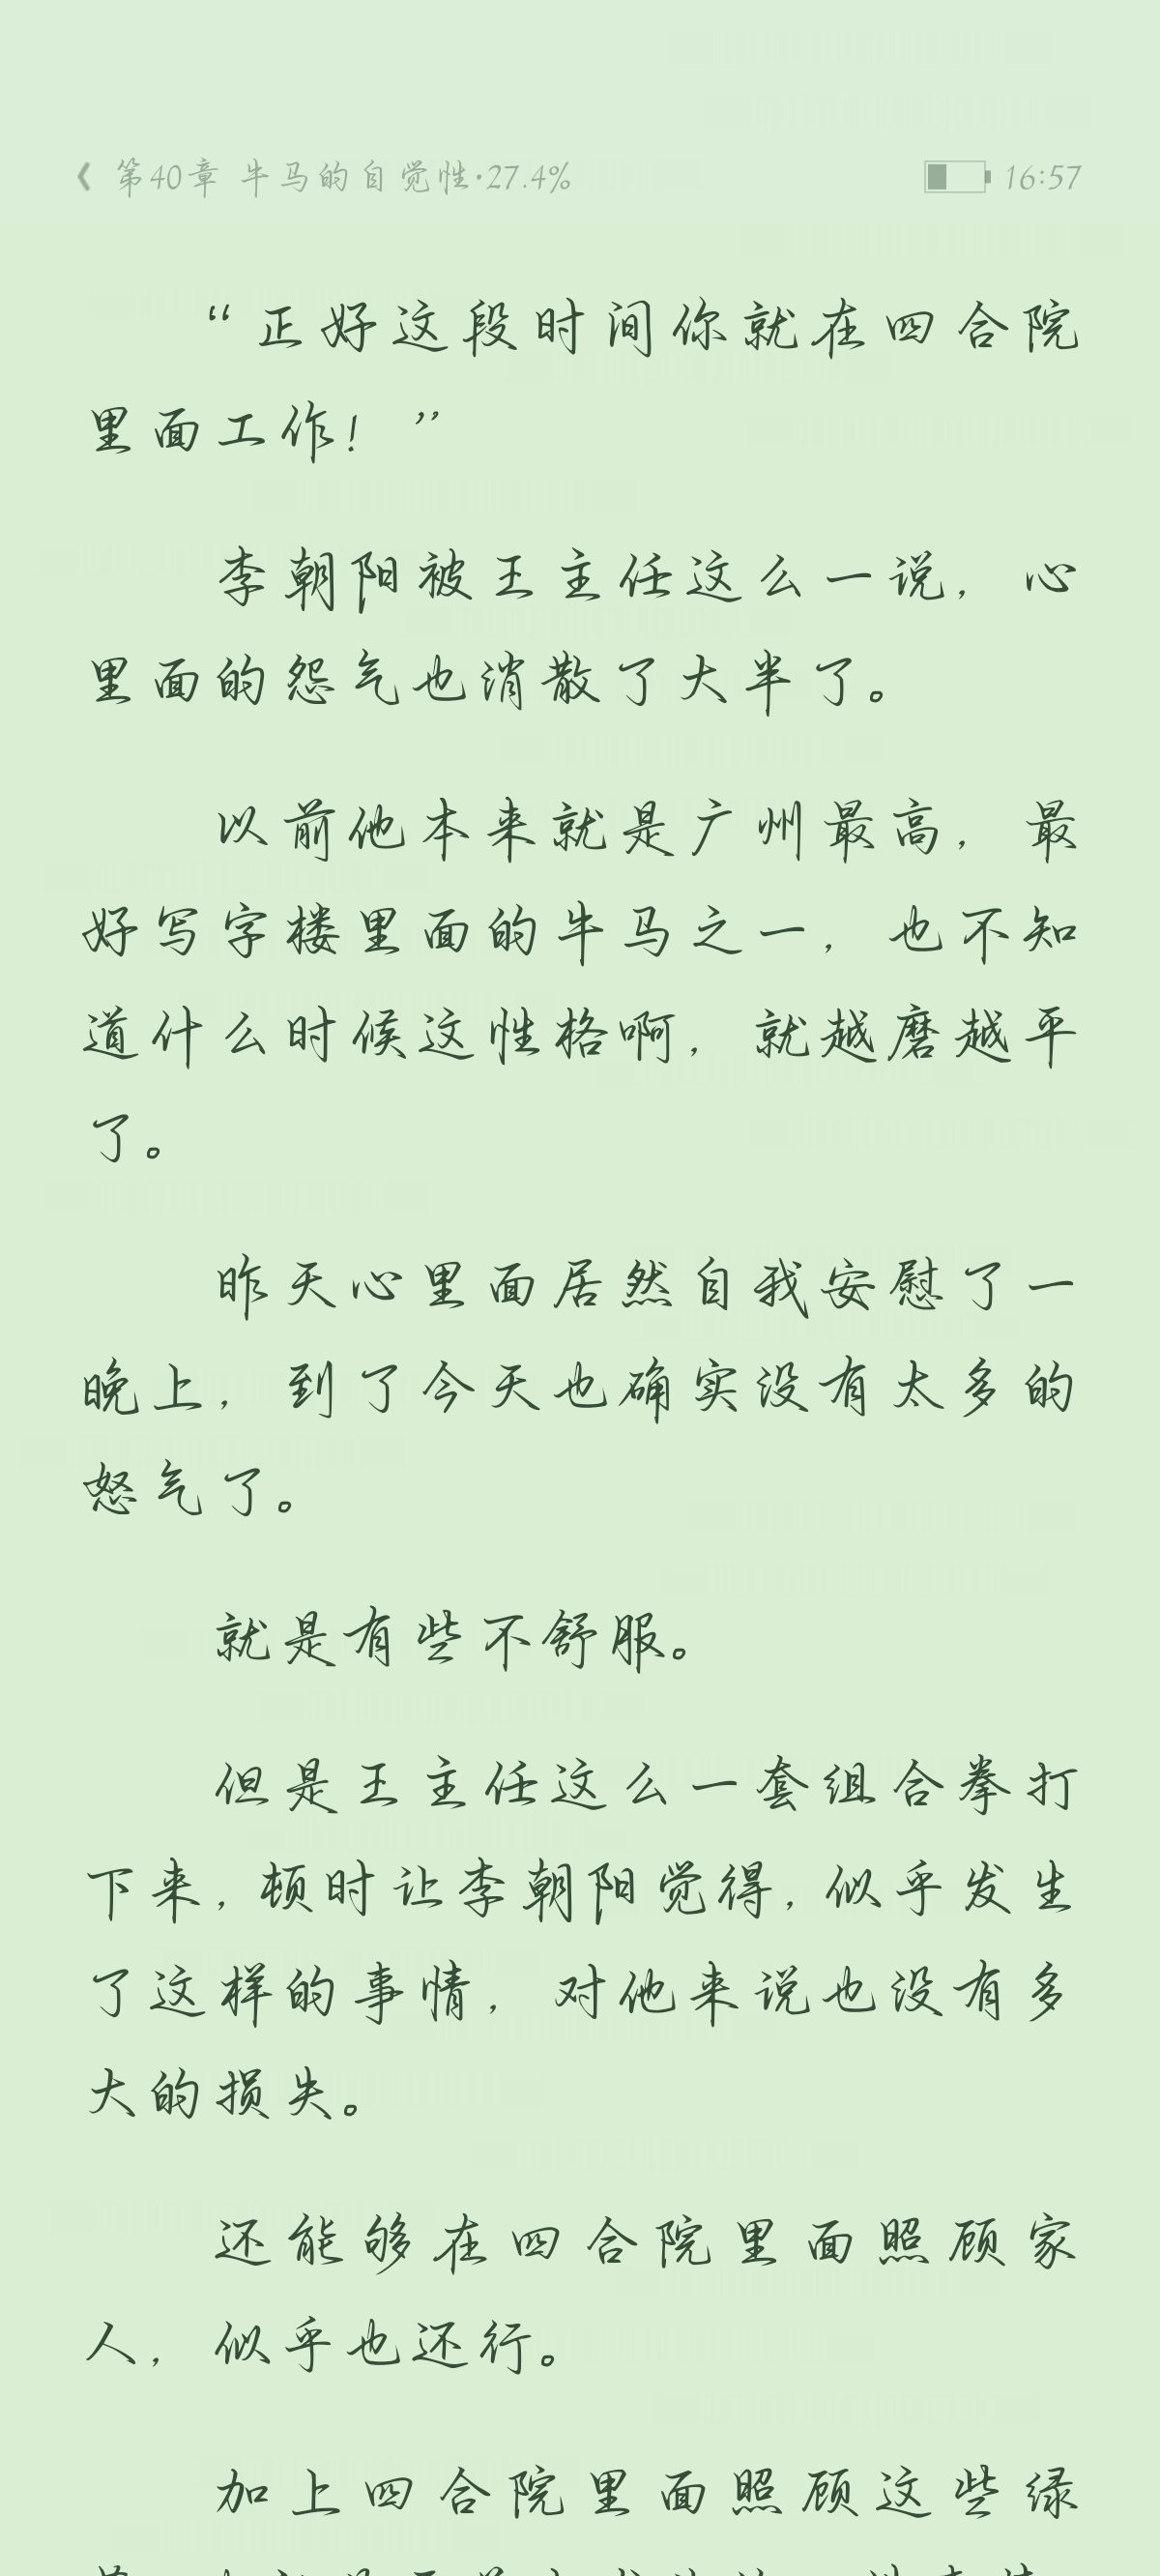 《 第40章 牛马的自觉性·27.4% 16:57
“正好这段时间你就在四合院
里面工作！”
李朝阳被王主任这么一说，心
里面的怨气也消散了大半了。
以前他本来就是广州最高，最
好写字楼里面的牛马之一，也不知
道什么时候这性格啊，就越磨越平
了。
昨天心里面居然自我安慰了一
晚上，到了今天也确实没有太多的
怒气了。
就是有些不舒服。
但是王主任这么一套组合拳打
下来，顿时让李朝阳觉得，似乎发生
了这样的事情，对他来说也没有多
大的损失。
还能够在四合院里面照顾家
人，似乎也还行。
加上四合院里面照顾这些绿